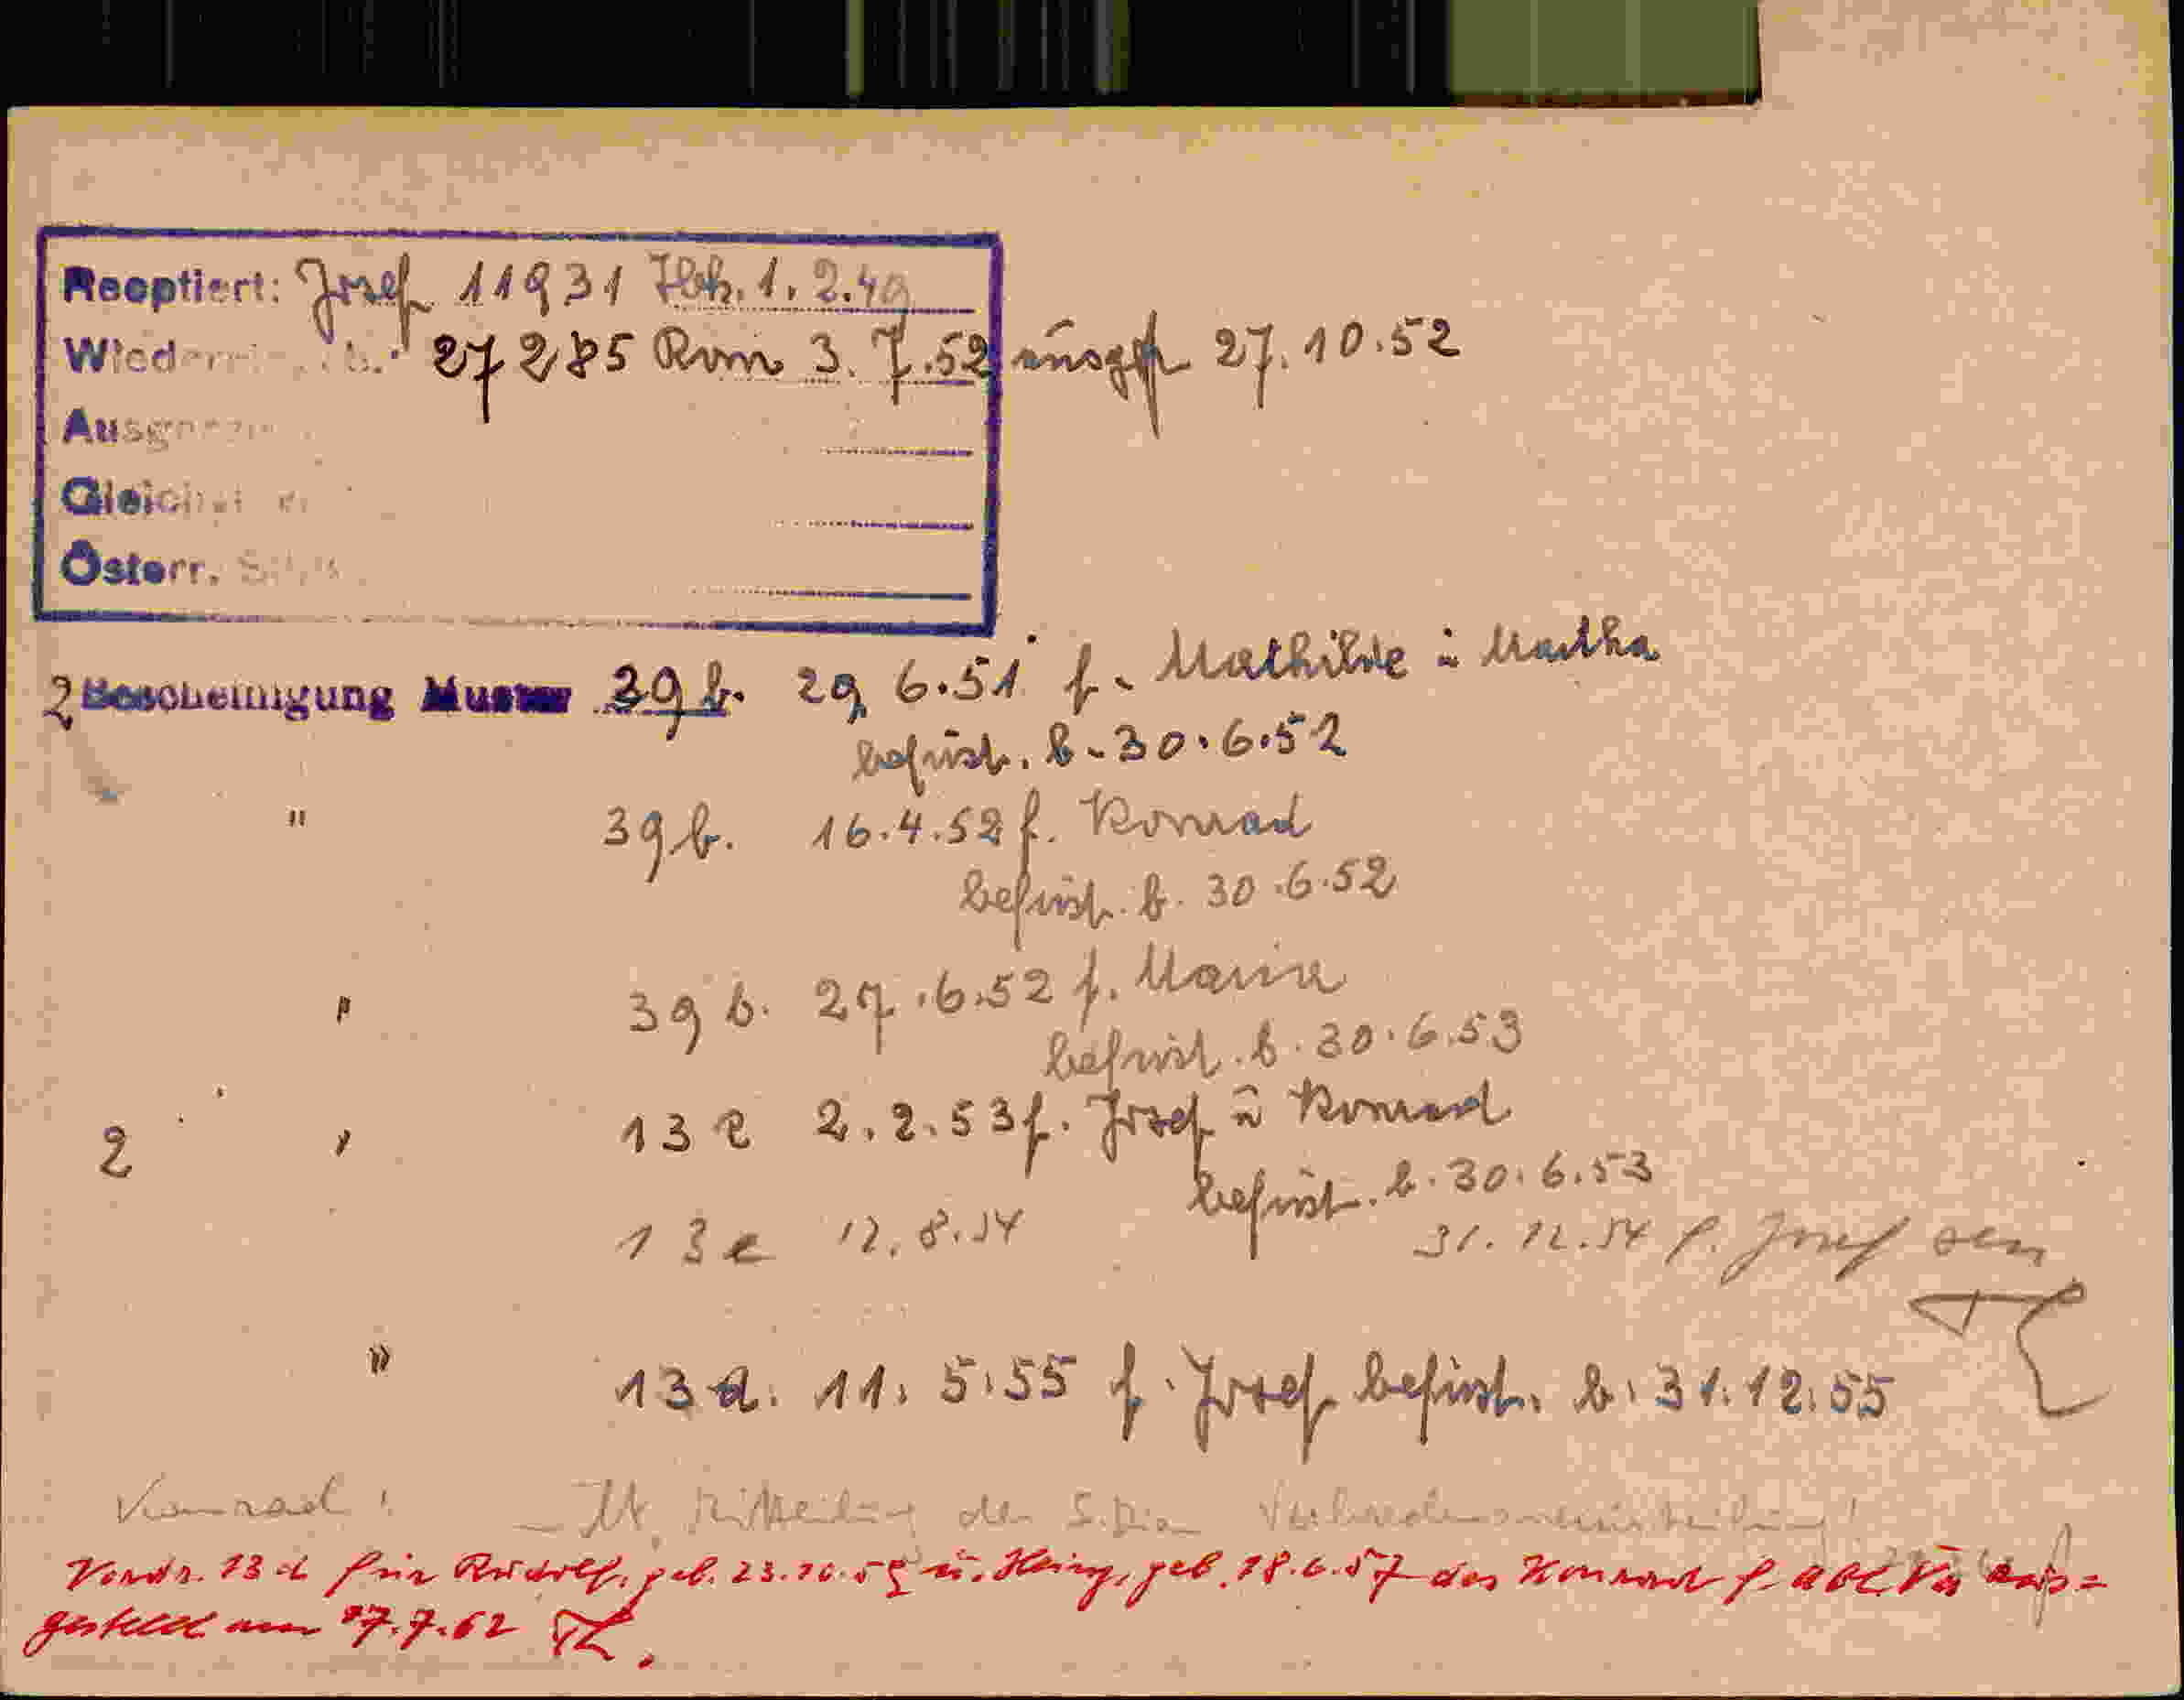 Reoptiert: Josef 11931 Ibk. 1. 2.49
27285 Rom 3. 7.52 ausgef 27.10.52
Österr.
2 Bescheinigung Muster 39 b. 29 6.51 f. Mathilde u Martha
befrist. b. 30.6.52
" 39 b. 16.4.52 f. Konrad
befrist. b. 30.6.52
" 39 b. 27.6.52 f. Maria
befrist. b. 30.6.53
2 " 13 e 2.2.53 f. Josef u Konrad
befrist. b. 30.6.53
13 e 12.8.54 31.12.54 f. Josef sen
" 13 a. 11. 5.55 f. Josef befrist. b. 31.12.55
Konrad! lt. Mitteilung der
Vordr. 13 d für Rudolf, geb. 23.10.59 u. Heinz, geb. 18.6.57 des Konrad f. aus=
gestellt am 17.7.62